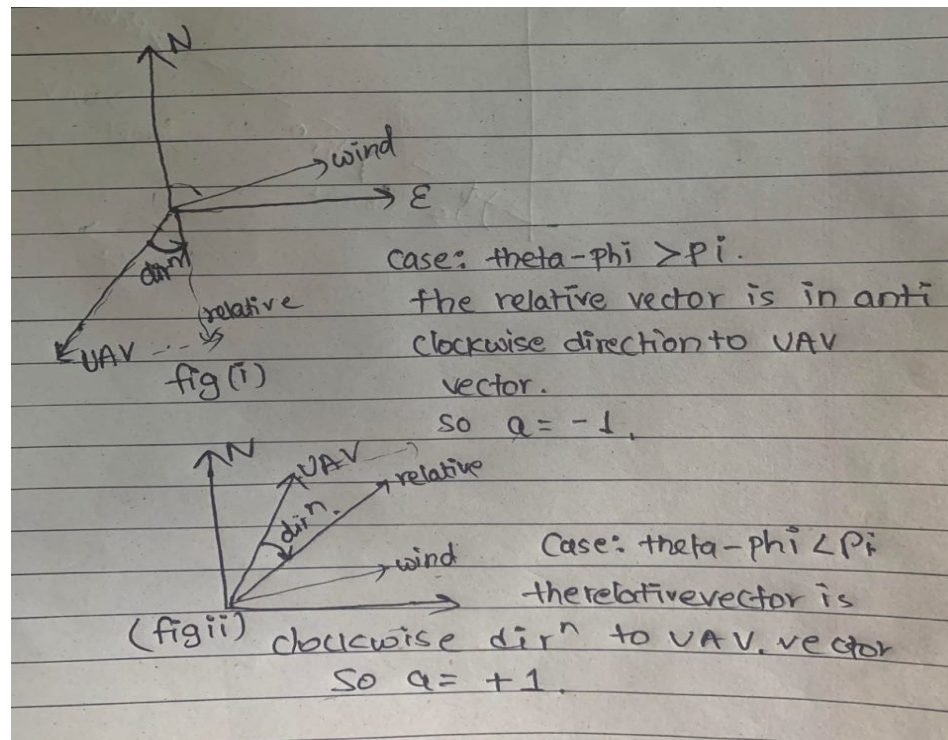 N
wind
E
dirn
relative
UAV
fig (i)
case: theta-phi >Pi.
the relative vector is in anti
clockwise direction to UAV
vector.
so a = -1.
N
UAV
relative
dirn.
wind
Case: theta-phi <Pi
the relative vector is
(fig ii) clockwise dirn to UAV. vector
So a = +1.